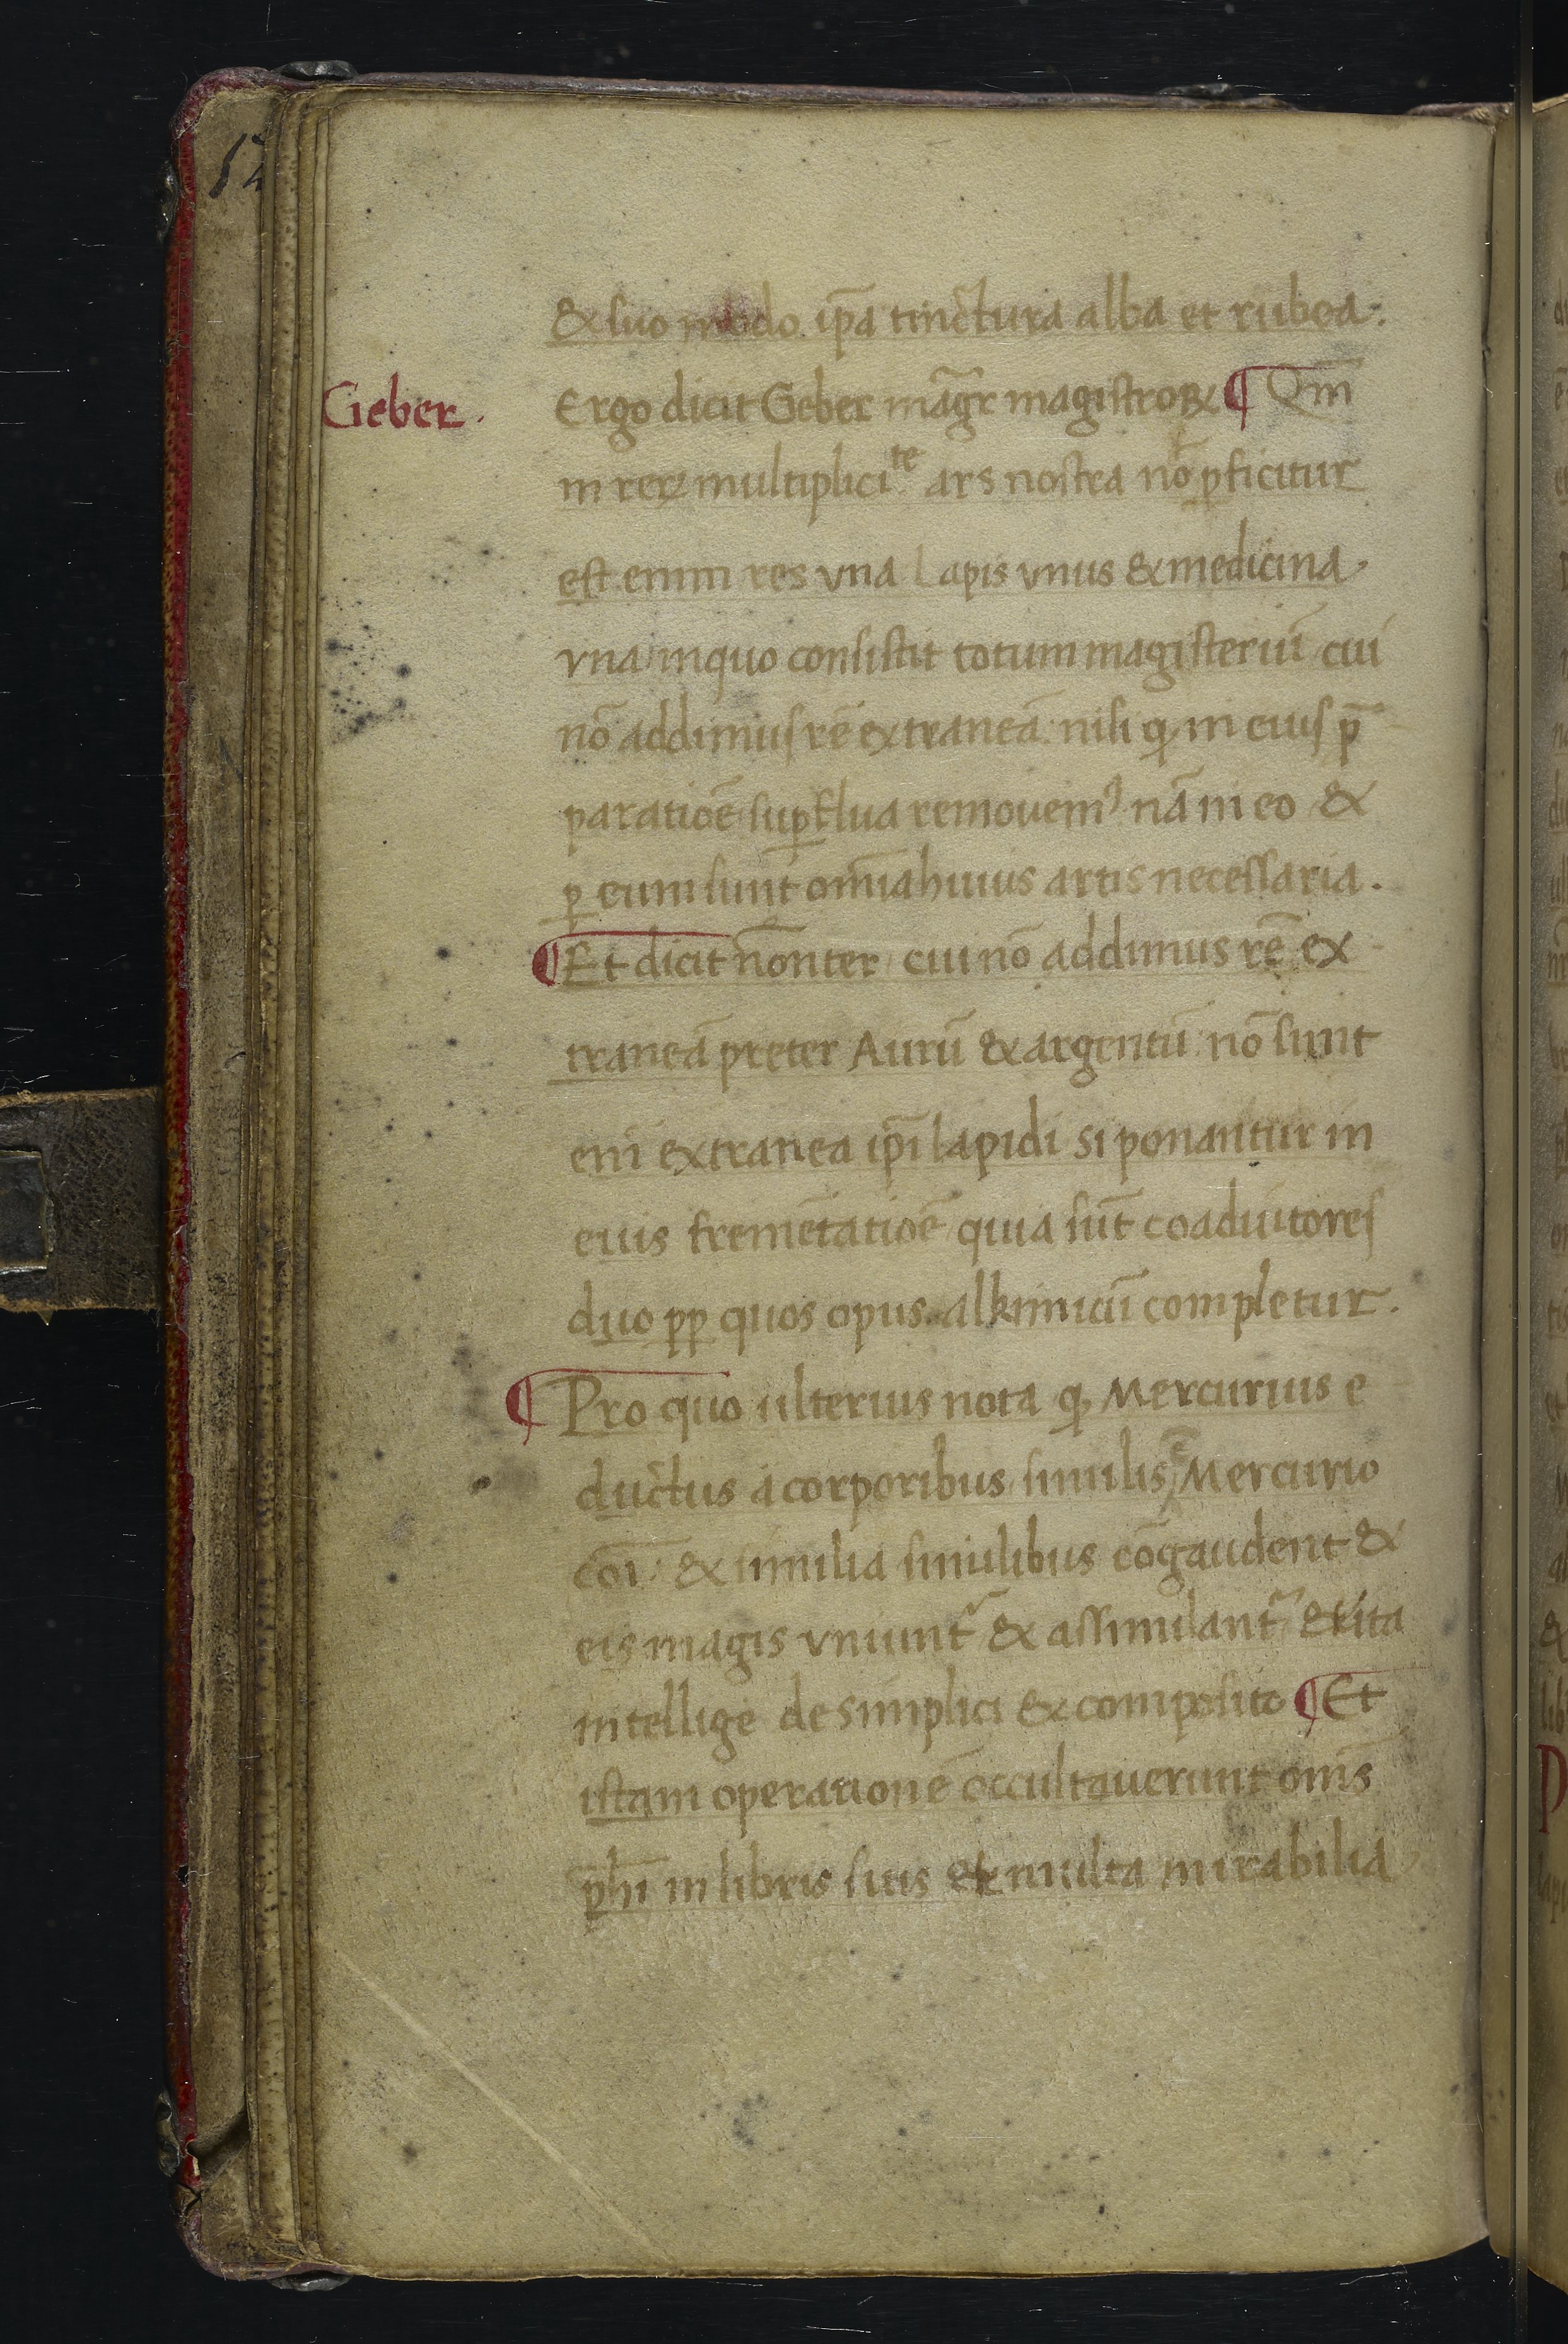 & suo modo ip̄a tinctura alba et rubea.
Geber.
Ergo dicit Geber māgr magistroꝝ ¶ Qm̄
in reꝝ multipliciᵗᵉ ars nostra nō ꝑficitur
est enim res vna Lapis vnus & medicina
vna in quo consistit totum magisteriū cui
nō addimus rē extraneā: nisi ꝙ in eius p̄
paratiōe suꝑflua remouemꝰ nā in eo &
ꝑ eum sunt omīa huius artis necessaria.
¶ Et dicit nōnter cui nō addimus rē ex
traneā preter Aurū & argentū: nō sunt
eni extranea ip̄i lapidi si ponantur in
euis fremētatiōe quia sūt coadiutores
duo ꝑꝑ quos opus alkimicū completur.
¶ Pro quo ulterius nota ꝙ Mercurius e
ductus a corporibus similis ē Mercurio
cōi & similia similibus cōgaudent &
eis magis vniunt᷑ & assimilant᷑ & ita
intellige de simplici & composito ¶ Et
istam operationē occultauerunt om̄s
ph̄i in libris suis et multa mirabilia